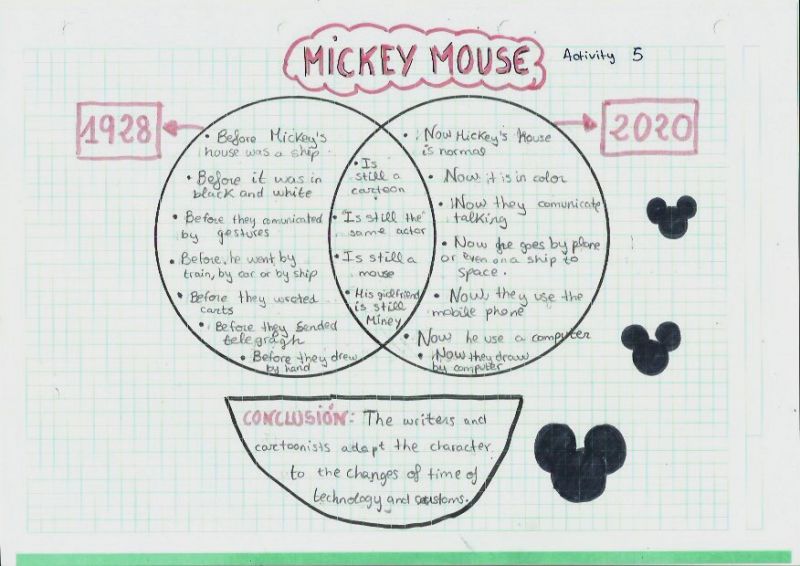 MICKEY MOUSE
Activity 5
1928
• Before Mickey's
house was a ship.
• Before it was in
black and white
• Before they comunicated
by gestures
• Before, he went by
train, by car or by ship
• Before they wroted
carts
• Before they sended
telegragh
• Before they drew
by hand
• Is
still a
cartoon
• Is still the
same actor
• Is still a
mouse
• His girlfriend
is still
Miney
2020
• Now Mickey's house
is normal
• Now it is in color
• Now they comunicate
talking
• Now he goes by plane
or even on a ship to
space.
• Now they use the
mobile phone
• Now he use a computer
• Now they draw
by computer
CONCLUSIÓN: The writers and
cartoonists adapt the character
to the changes of time of
technology and customs.